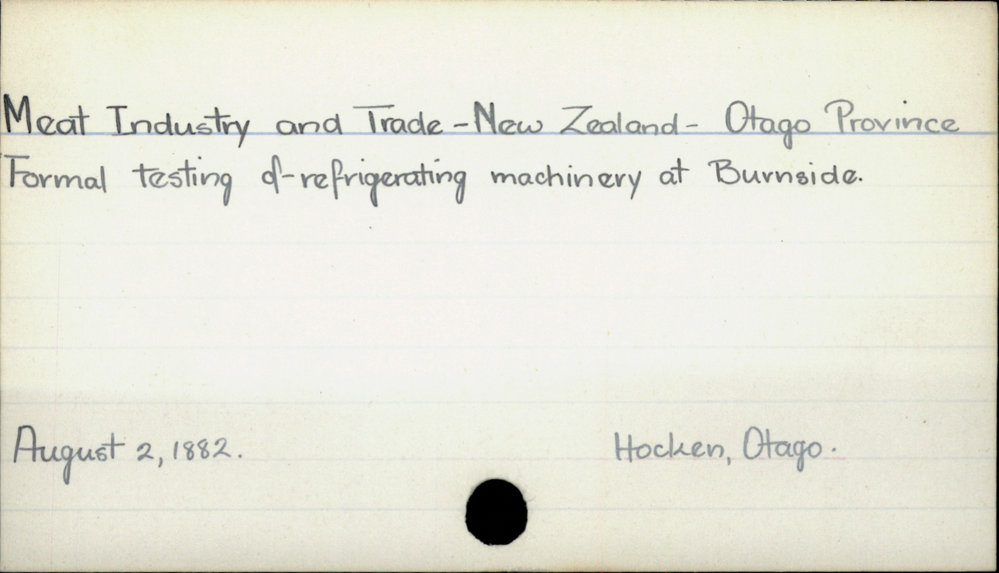 Meat Industry and Trade - New Zealand - Otago Province
Formal testing of refrigerating machinery at Burnside.
August 2, 1882.
Hocken, Otago.